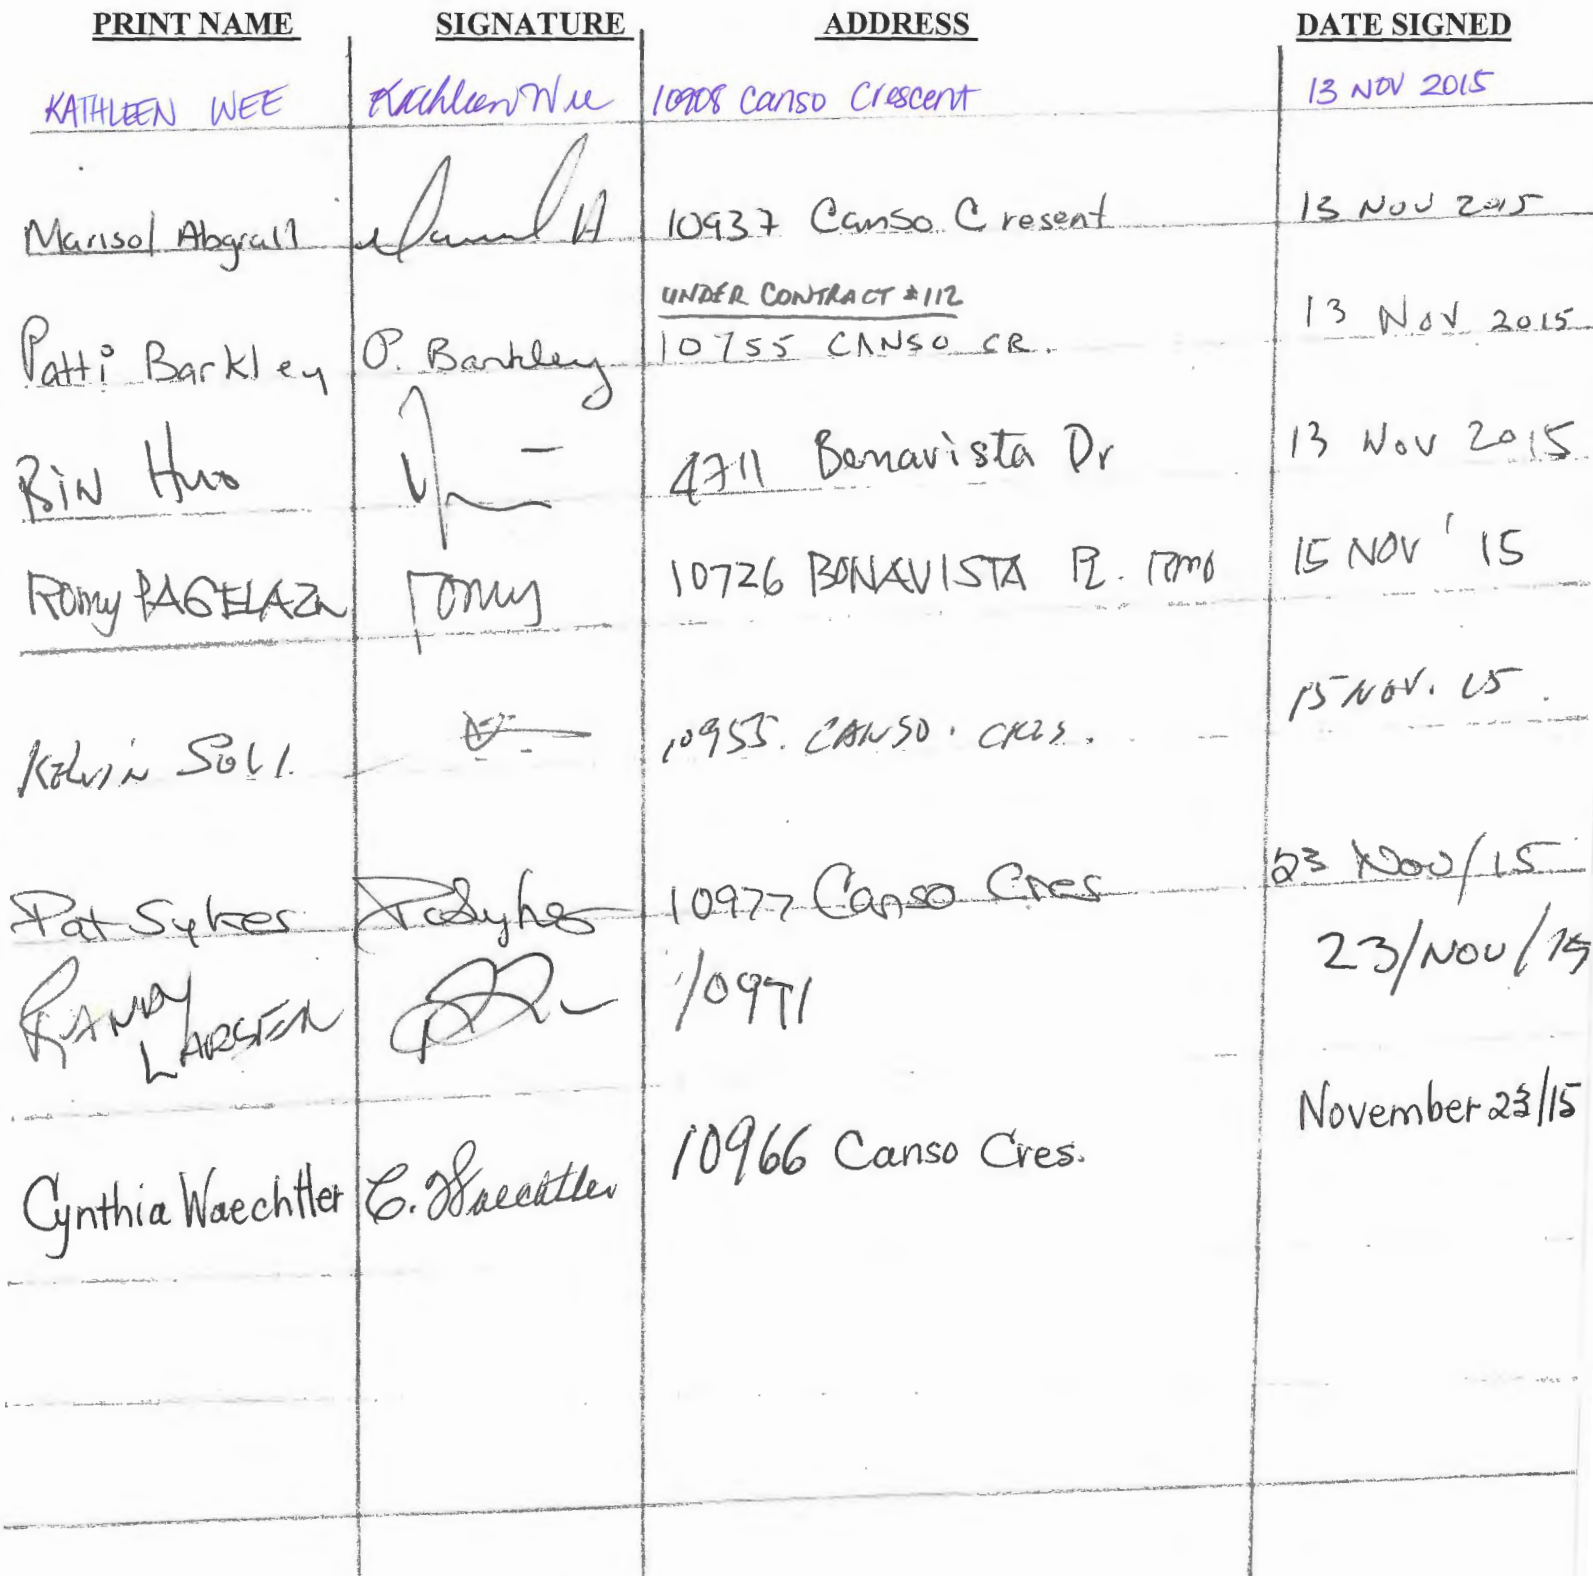 PRINT NAME SIGNATURE ADDRESS DATE SIGNED
KATHLEEN WEE Kathleen Wee 10908 Canso Crescent 13 NOV 2015
Marisol Abgrall 10937 Canso Cresent 13 NOV 2015
UNDER CONTRACT #112
Patti Barkley P. Barkley 10755 CANSO CR. 13 Nov 2015
BiN Huo 4711 Bonavista Dr 13 Nov 2015
Romy Romy 10726 BONAVISTA PL. RMD 15 NOV ' 15
KELVIN 10955. CANSO. CRES. 15 NOV. 15.
Pat Sykes P Sykes 10977 Canso Cres 23 Nov/15
RANDY LARSTEN 10971 23/NOV/15
Cynthia Waechtler C. Waechtler 10966 Canso Cres. November 23/15